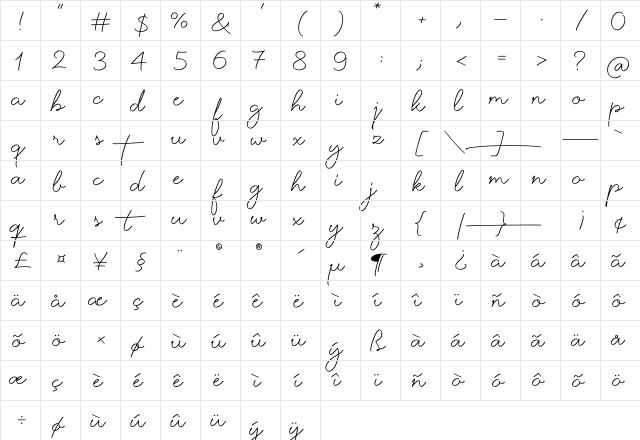 ! " # $ % & ' ( ) * + , — · / 0
1 2 3 4 5 6 7 8 9 : ; < = > ? @
a b c d e f g h i j k l m n o p
q r s t u v w x y z [ \ ] — `
a b c d e f g h i j k l m n o p
q r s t u v w x y z { | } ¡ ¢
£ ¤ ¥ § ¨ © ® ´ µ ¶ ¸ ¿ à á â ã
ä å æ ç è é ê ë ì í î ï ñ ò ó ô
õ ö × ø ù ú û ü ý ß à á â ã ä å
æ ç è é ê ë ì í î ï ñ ò ó ô õ ö
÷ ø ù ú û ü ý ÿ